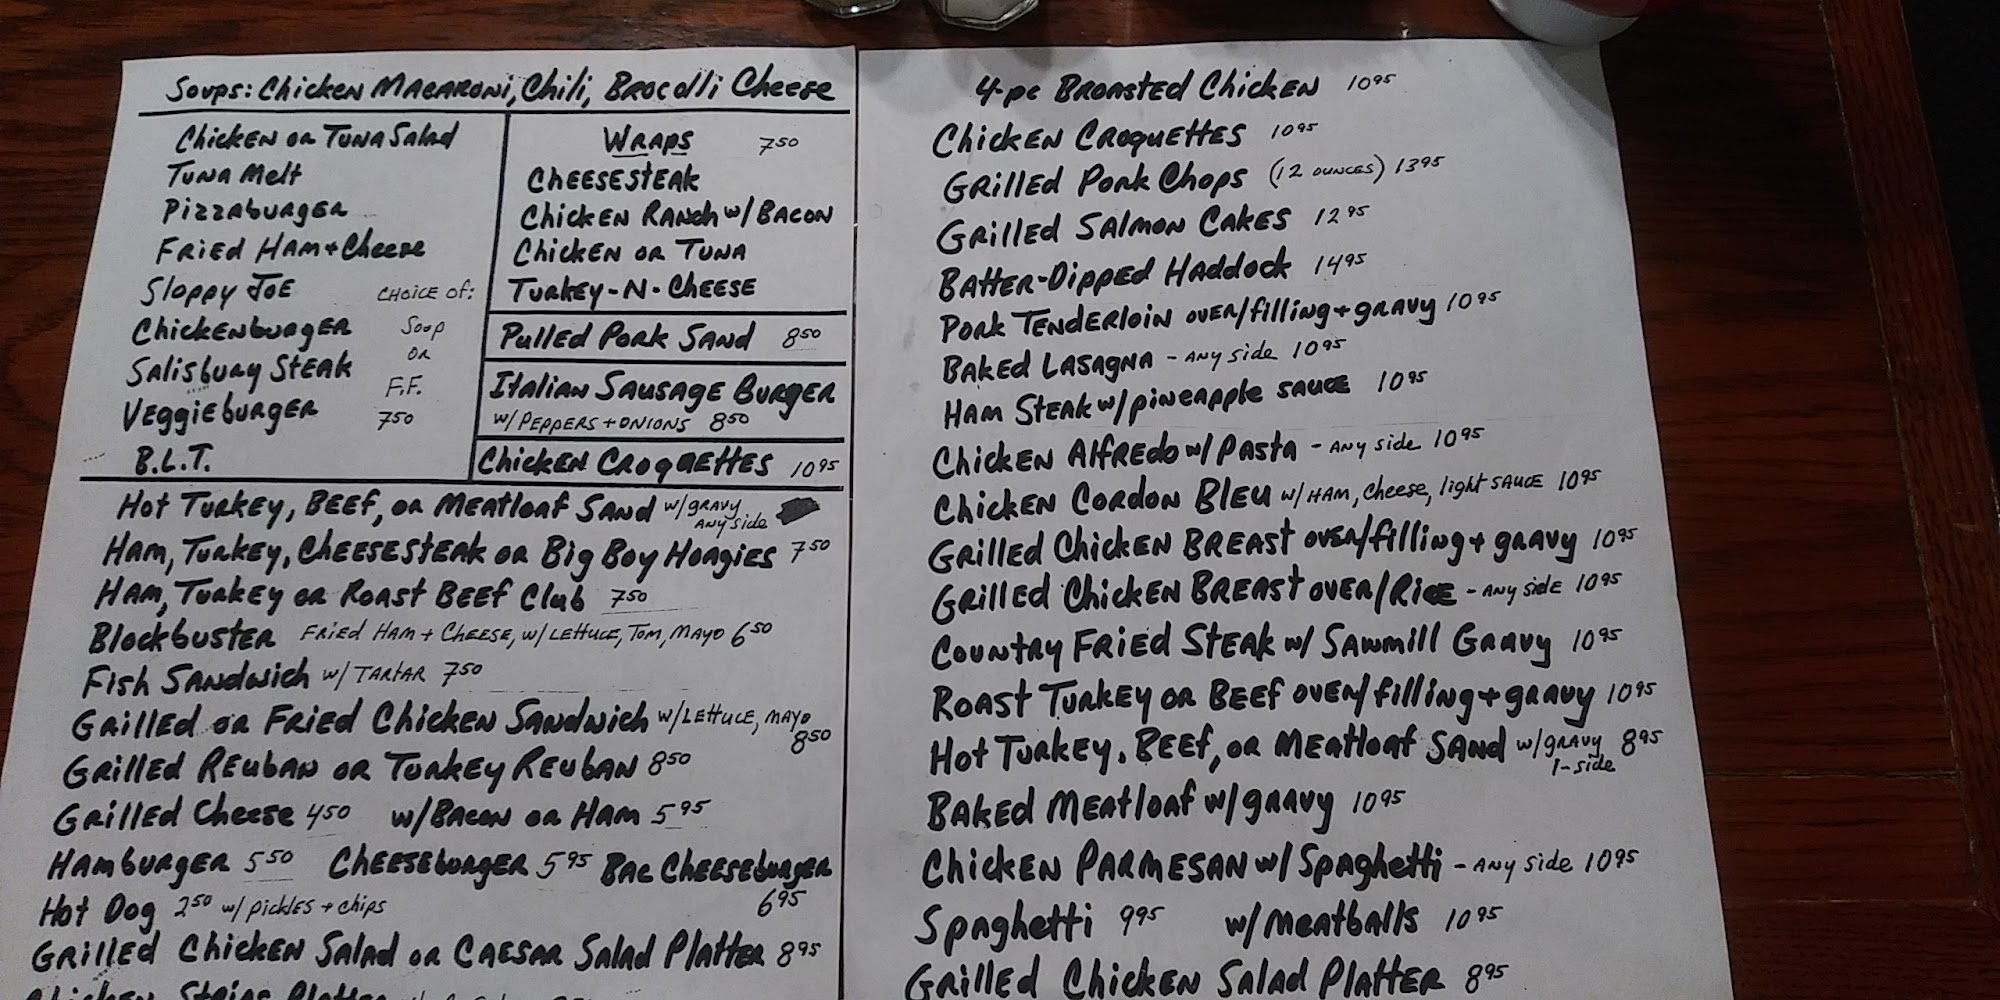 Soups: Chicken Macaroni, Chili, Brocolli Cheese
Chicken or Tuna Salad
Tuna Melt
Pizzaburger
Fried Ham + Cheese
Sloppy Joe
Chickenburger
Salisbury Steak
Veggieburger
B.L.T.
Choice of:
Soup
or
F.F.
7 50
Wraps 7 50
Cheesesteak
Chicken Ranch w/ Bacon
Chicken or Tuna
Turkey-N-Cheese
Pulled Pork Sand 8 50
Italian Sausage Burger
w/ Peppers + Onions 8 50
Chicken Croquettes 10 95
Hot Turkey, Beef, or Meatloaf Sand w/ gravy
any side
Ham, Turkey, Cheesesteak or Big Boy Hoagies 7 50
Ham, Turkey or Roast Beef Club 7 50
Blockbuster Fried Ham + Cheese, w/ Lettuce, Tom, Mayo 6 50
Fish Sandwich w/ Tartar 7 50
Grilled or Fried Chicken Sandwich w/ Lettuce, mayo
8 50
Grilled Reuban or Turkey Reuban 8 50
Grilled Cheese 4 50 w/ Bacon or Ham 5 95
Hamburger 5 50 Cheeseburger 5 95 Bac Cheeseburger
6 95
Hot Dog 2 50 w/ pickles + chips
Grilled Chicken Salad or Caesar Salad Platter 8 95
Chicken Strips Platter
4-pc Broasted Chicken 10 95
Chicken Croquettes 10 95
Grilled Pork Chops (12 ounces) 13 95
Grilled Salmon Cakes 12 95
Batter-Dipped Haddock 14 95
Pork Tenderloin over/filling + gravy 10 95
Baked Lasagna - any side 10 95
Ham Steak w/ pineapple sauce 10 95
Chicken Alfredo w/ Pasta - any side 10 95
Chicken Cordon Bleu w/ Ham, cheese, light sauce 10 95
Grilled Chicken Breast over/filling + gravy 10 95
Grilled Chicken Breast over/Rice - any side 10 95
Country Fried Steak w/ Sawmill Gravy 10 95
Roast Turkey or Beef over/filling + gravy 10 95
Hot Turkey, Beef, or Meatloaf Sand w/ gravy 8 95
1-side
Baked Meatloaf w/ gravy 10 95
Chicken Parmesan w/ Spaghetti - any side 10 95
Spaghetti 9 95 w/ meatballs 10 95
Grilled Chicken Salad Platter 8 95